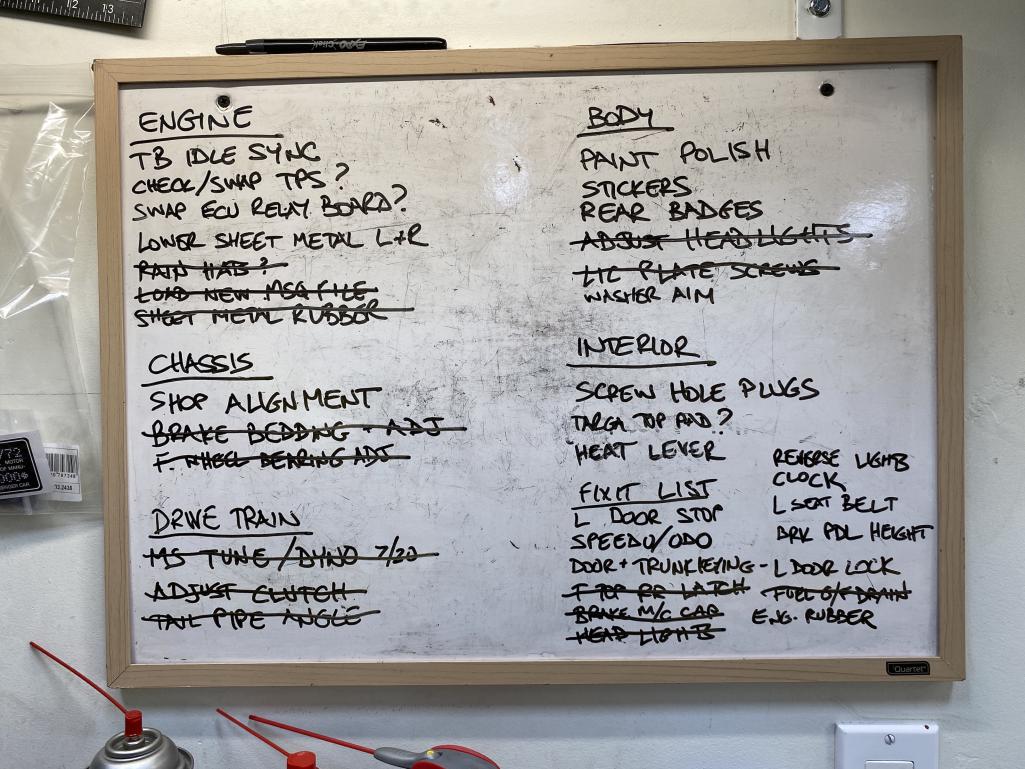 12
13
EXPO Click
ENGINE
TB IDLE SYNC
CHECK/SWAP TPS?
SWAP ECU RELAY BOARD?
LOWER SHEET METAL L+R
RAIN HAT?
LOAD NEW MSQ FILE
SHEET METAL RUBBER
CHASSIS
SHOP ALIGNMENT
BRAKE BEDDING - ADJ
F. WHEEL BEARING ADJ
DRIVE TRAIN
MS TUNE / DYNO 7/20
ADJUST CLUTCH
TAIL PIPE ANGLE
BODY
PAINT POLISH
STICKERS
REAR BADGES
ADJUST HEADLIGHTS
LIC PLATE SCREWS
WASHER AIM
INTERIOR
SCREW HOLE PLUGS
TARGA TOP PAD?
HEAT LEVER
FIXIT LIST
L DOOR STOP
SPEEDO/ODO
DOOR + TRUNK KEYING - L DOOR LOCK
F TOP RR LATCH
BRAKE M/C CAP
HEAD LIGHTS
REVERSE LIGHTS
CLOCK
L SEAT BELT
BRK PDL HEIGHT
FUEL O/F DRAIN
ENG. RUBBER
Quartet
MOTOR